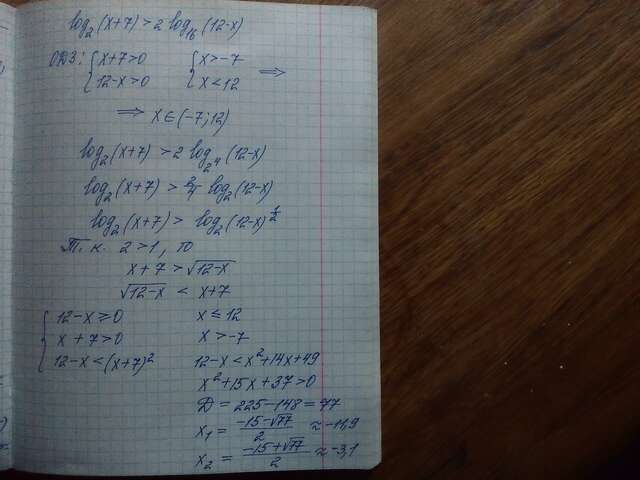 log₂(x+7) > 2 log₁₆(12-x)
ОДЗ: { x+7>0 { x>-7
12-x>0 x<12 ⇒
⇒ x∈(-7;12)
log₂(x+7) > 2 log_{2⁴}(12-x)
log₂(x+7) > 2/4 log₂(12-x)
log₂(x+7) > log₂(12-x)^{1/2}
Т.к. 2>1, то
x+7 > √(12-x)
√(12-x) < x+7
{ 12-x≥0 x≤12
x+7>0 x>-7
12-x<(x+7)² 12-x<x²+14x+49
x²+15x+37>0
Д = 225-148 = 77
x₁ = (-15-√77)/2 ≈ -11,9
x₂ = (-15+√77)/2 ≈ -3,1